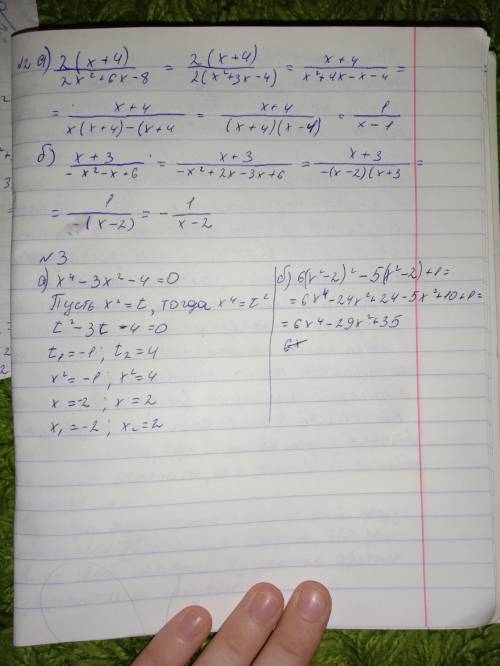 №2 а) 2(x+4)/(2x²+6x-8) = 2(x+4)/(2(x²+3x-4)) = (x+4)/(x²+4x-x-4) =
= (x+4)/(x(x+4)-(x+4) = (x+4)/((x+4)(x-1)) = 1/(x-1)
б) (x+3)/(-x²-x+6) = (x+3)/(-x²+2x-3x+6) = (x+3)/(-(x-2)(x+3) =
= 1/(-(x-2)) = -1/(x-2)
№3
а) x⁴-3x²-4=0
Пусть x²=t, тогда x⁴=t²
t²-3t-4=0
t₁=-1; t₂=4
x²=-1; x²=4
x=-2; x=2
x₁=-2; x₂=2
б) 6(x²-2)²-5(x²-2)+1=
=6x⁴-24x²+24-5x²+10+1=
=6x⁴-29x²+35